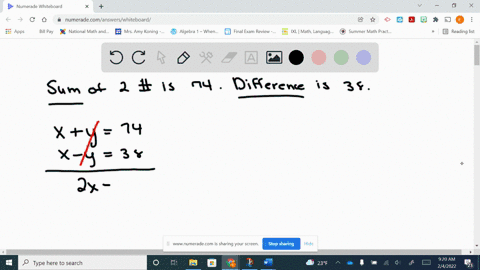 Numerade Whiteboard
numerade.com/answers/whiteboard/
Apps
Bill Pay
National Math and
Mrs. Amy Koning -
Algebra 1 - When
Final Exam Review -
IXL | Math, Languag
Summer Math Pract
Reading list
Sum of 2 # is 74. Difference is 38.
x + y = 74
x - y = 38
2x =
www.numerade.com is sharing your screen.
Stop sharing
Hide
Type here to search
23°F
9:20 AM
2/4/2022